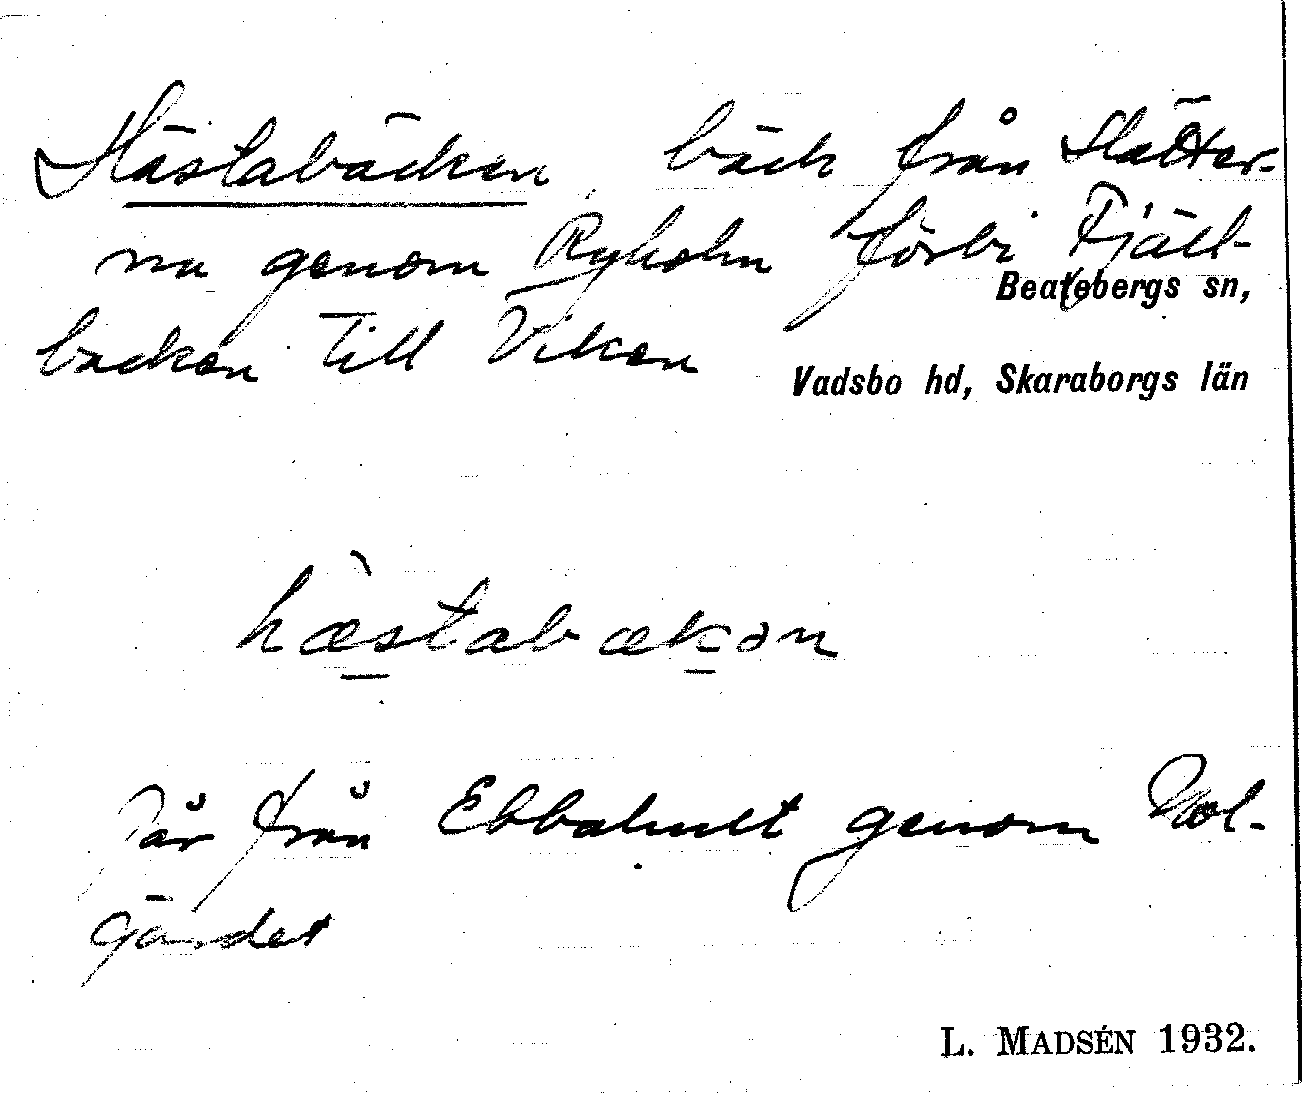 Hästabäcken bäck från Slätter-
na genom Ryholm förbi Fjäll-
Beatebergs sn,
backen till Viken
Vadsbo hd, Skaraborgs län
hæ̀stabækən
går från Ebbahult genom Nol-
gärdet
L. MADSÉN 1932.